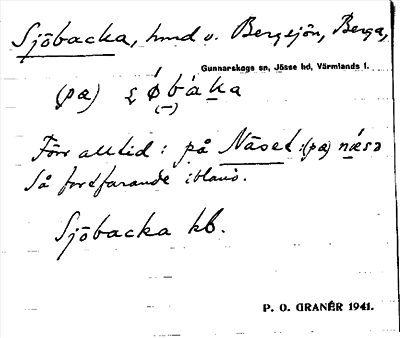 Sjöbacka, hmd v. Bergsjön, Berga,
Gunnarskogs sn, Jösse hd, Värmlands l.
(pa)
Förr alltid: på Näset: (pa) næsə
Så fortfarande ibland.
Sjöbacka kb.
P. O. GRANÉR 1941.